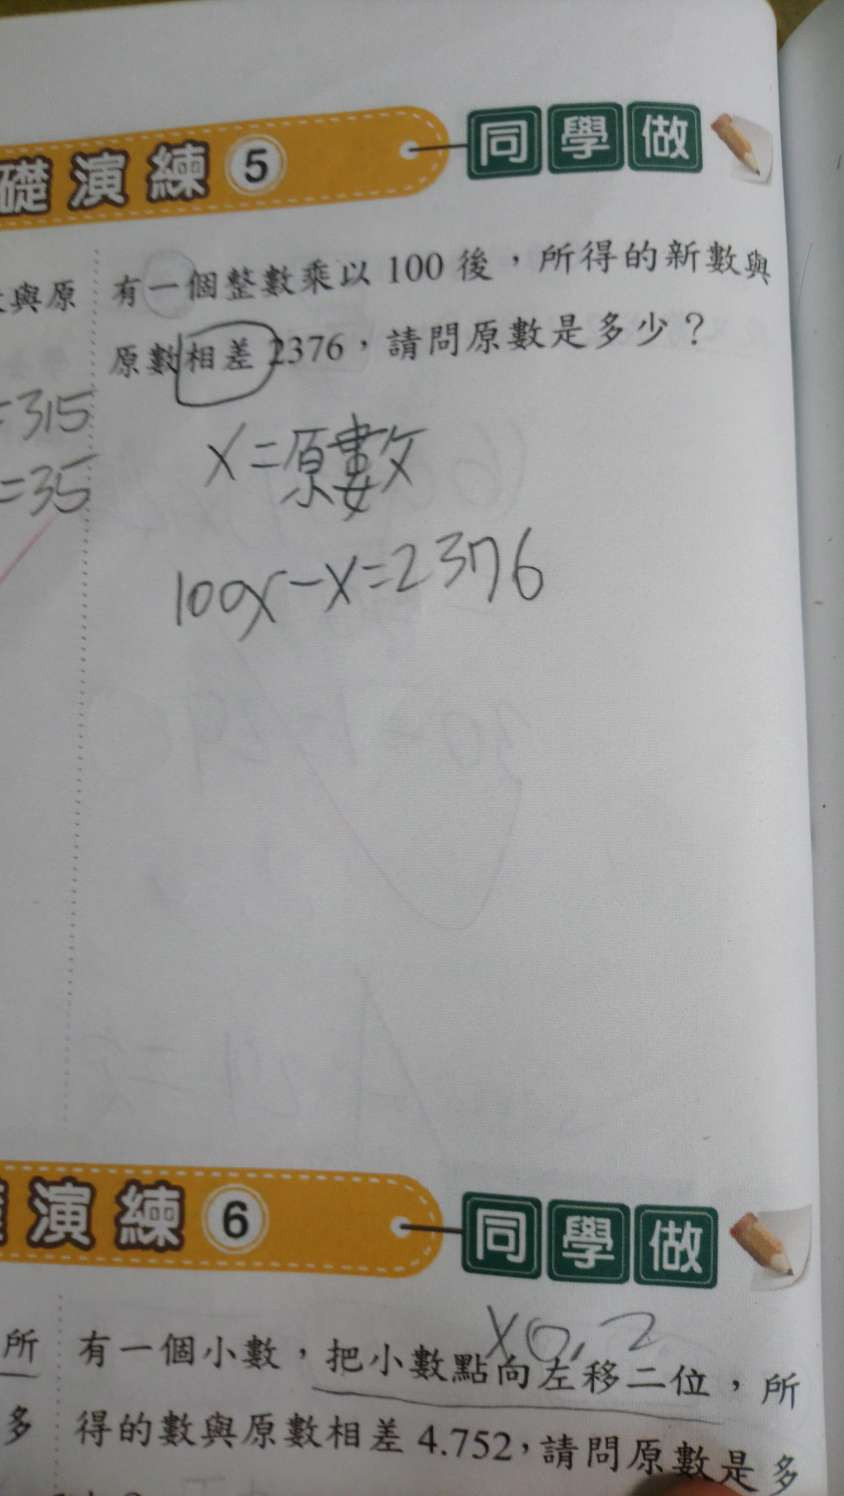 礎演練 5 同學做
與原
=315
=35
有一個整數乘以 100 後，所得的新數與
原數相差 2376，請問原數是多少？
x=原數
100x-x=2376
演練 6 同學做
所
多
x0.2
有一個小數，把小數點向左移二位，所
得的數與原數相差 4.752，請問原數是多